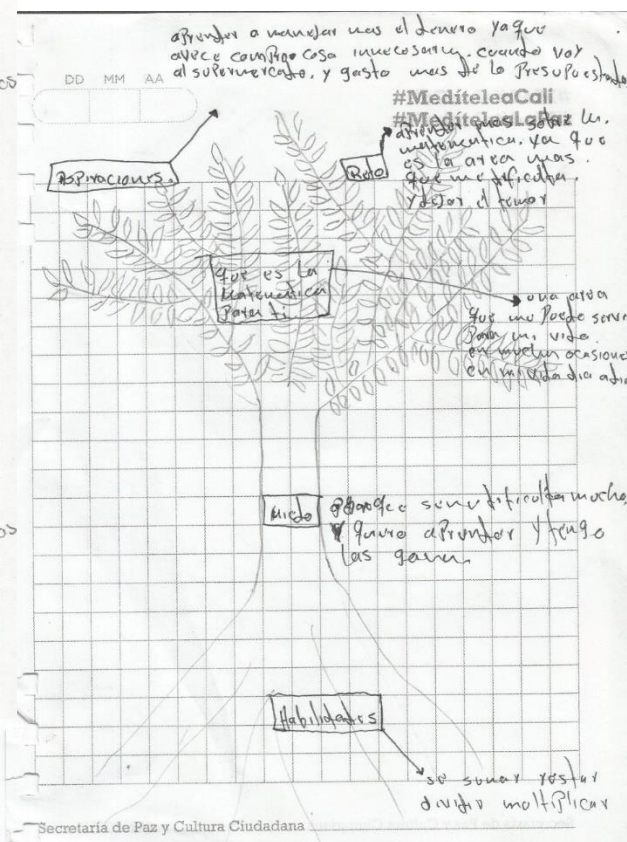 aprender a manejar mas el denero ya que
avece compro cosa innecesaria. cuando voy
al supermercado, y gasto mas de lo Presupuestado
DD MM AA
#MedíteleaCali
#MedíteleaLaPaz
Aspiraciones.
Reto
aprender mas sobre la.
matematica. ya que
es la area mas.
que me dificulta.
y dejar el temor
que es la
Matematica
Para ti
una area
que me Puede servi
Para mi vida
en mucha ocasiones
en mi vida dia a dia
Miedo
porque se me dificulta mucho,
y quiero aprender y tengo
las ganas
Habilidades
se sumar restar
dividir multiplicar
Secretaría de Paz y Cultura Ciudadana